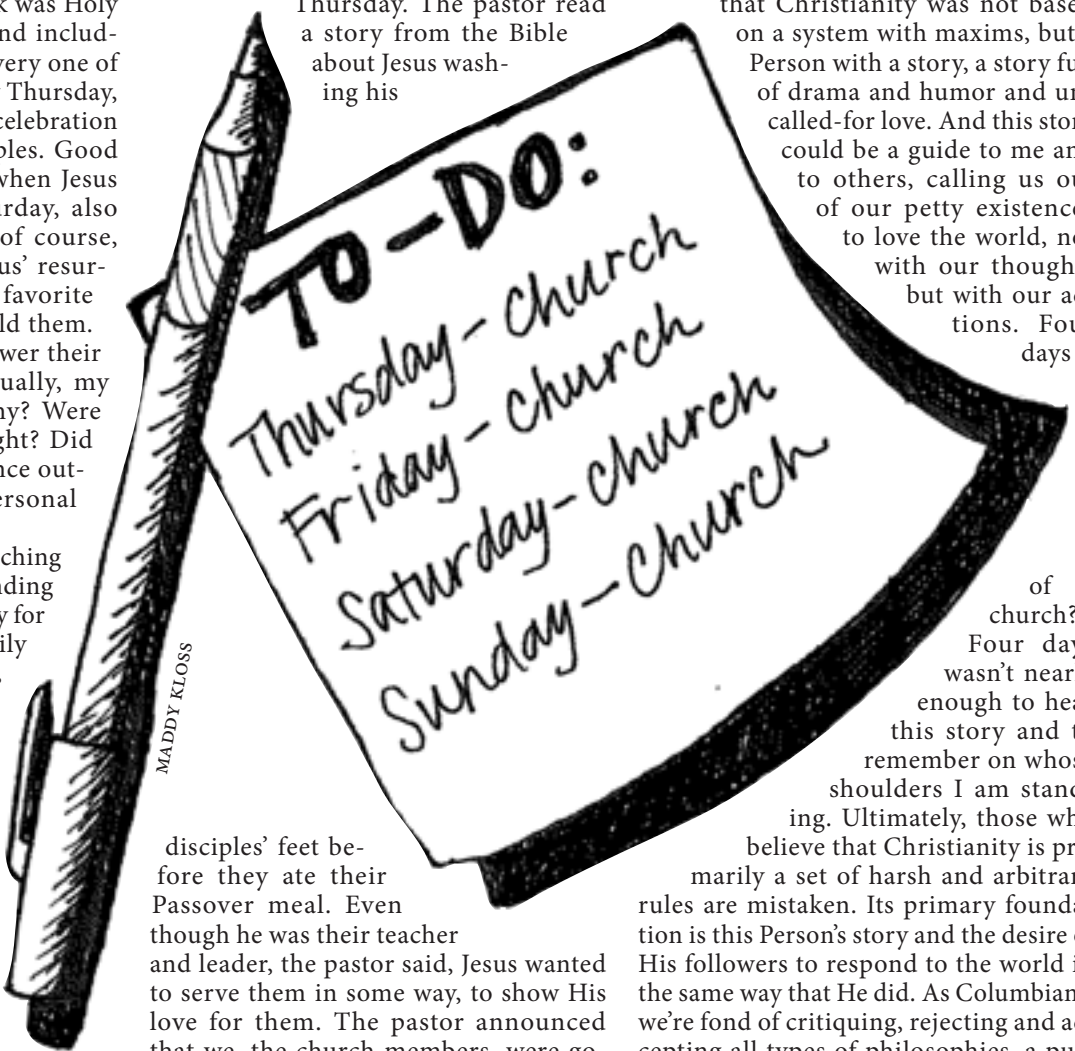 k was Holy
nd includ-
very one of
Thursday,
celebration
ples. Good
when Jesus
urday, also
of course,
us' resur-
favorite
ld them.
wer their
ually, my
hy? Were
ght? Did
nce out-
ersonal
ching
nding
y for
ily
Thursday. The pastor read
a story from the Bible
about Jesus wash-
ing his
TO-DO:
Thursday - church
Friday - church
Saturday - church
Sunday - church
MADDY KLOSS
disciples' feet be-
fore they ate their
Passover meal. Even
though he was their teacher
and leader, the pastor said, Jesus wanted
to serve them in some way, to show His
love for them. The pastor announced
that we, the church members, were go-
that Christianity was not base
on a system with maxims, but
Person with a story, a story fu
of drama and humor and un
called-for love. And this stor
could be a guide to me an
to others, calling us ou
of our petty existence
to love the world, no
with our though
but with our ac
tions. Fou
days
of
church?
Four day
wasn't near
enough to hea
this story and t
remember on whos
shoulders I am stand
ing. Ultimately, those wh
believe that Christianity is pr
marily a set of harsh and arbitrar
rules are mistaken. Its primary founda
tion is this Person's story and the desire
His followers to respond to the world i
the same way that He did. As Columbian
we're fond of critiquing, rejecting and ac
cepting all types of philosophies, a pu